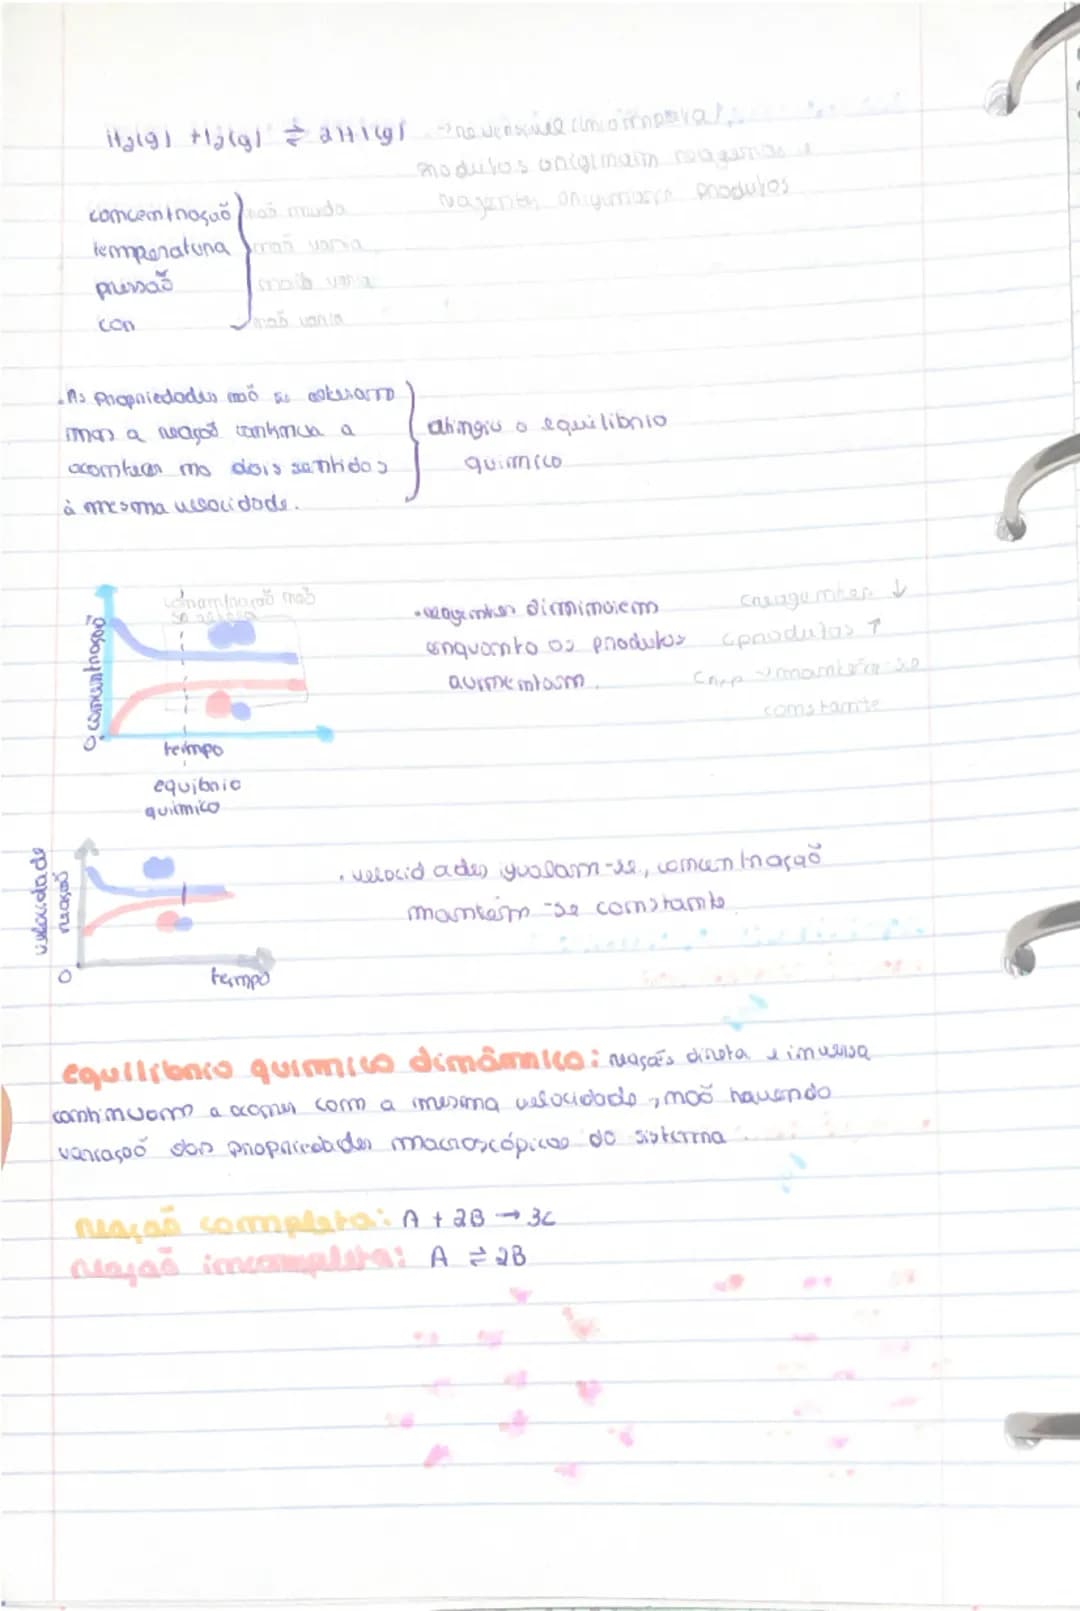 H₂(g) + I₂(g) ⇌ 2HI(g) → reversível (incompleta)
produtos originam reagentes e
reagentes originam produtos
concentração não muda
temperatura não varia
pressão não varia
cor não varia
. As propriedades não se alteram
mas a reação continua a
acontecer no dois sentidos
à mesma velocidade.
atingiu o equilíbrio
químico
concentração não
se altera
concentração
0
tempo
equíbrio
químico
• reagentes diminuiem
enquanto os produtos
aumentam.
Creagentes ↓
Cprodutos ↑
mantém-se
constante
velocidade
reação
0
tempo
. velocidades igualam-se, concentração
mantém-se constante
equilíbrio químico dinâmico: reações direta e inversa
continuam a ocorrer com a mesma velocidade, não havendo
variação das propriedades macroscópicas do sistema.
reação completa: A + 2B → 3C
reação incompleta: A ⇌ 2B